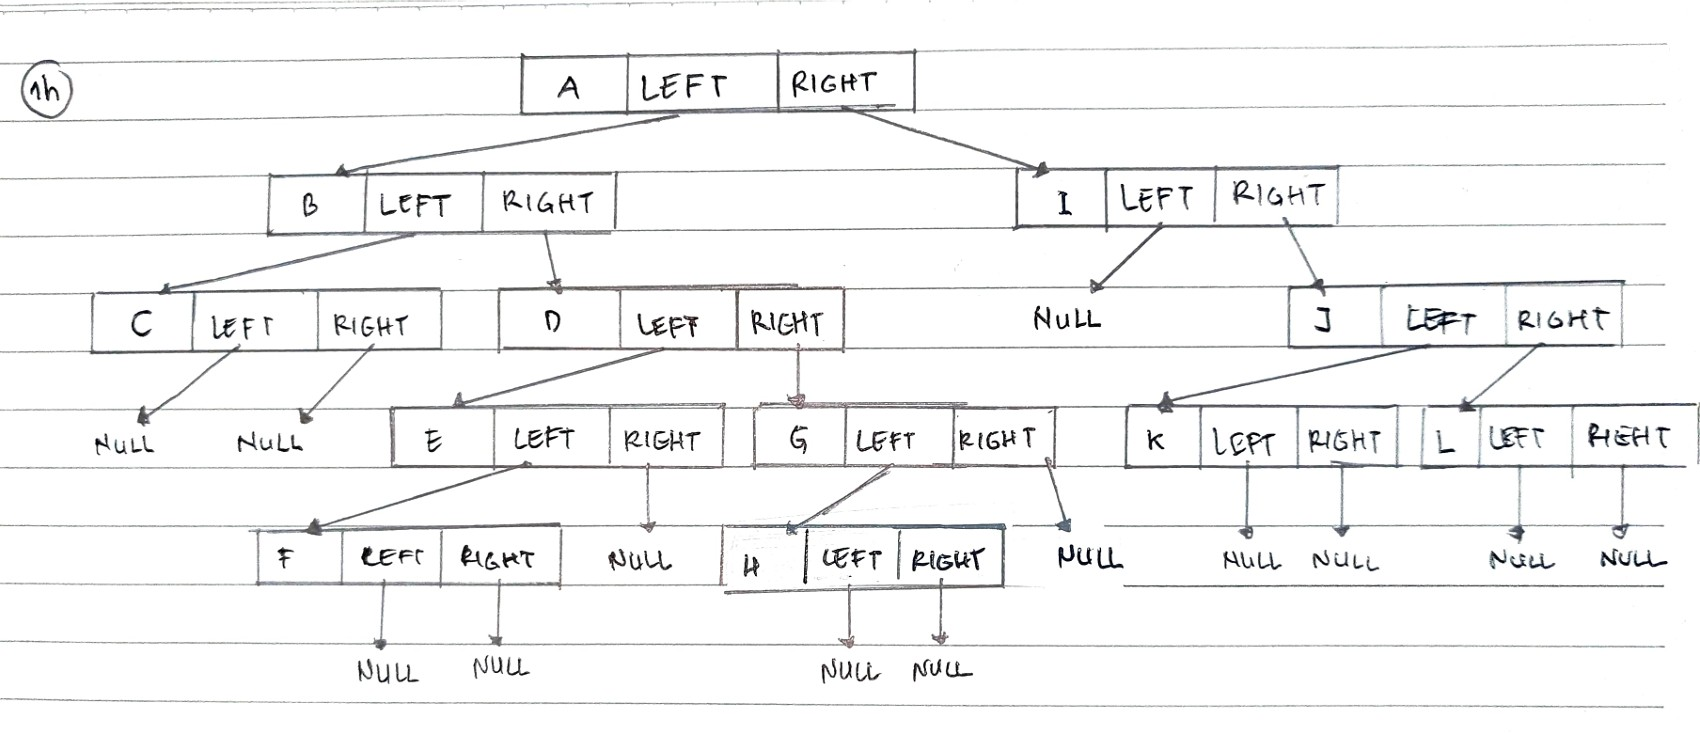 1h
A LEFT RIGHT
B LEFT RIGHT I LEFT RIGHT
C LEFT RIGHT D LEFT RIGHT NULL J LEFT RIGHT
NULL NULL E LEFT RIGHT G LEFT RIGHT K LEFT RIGHT L LEFT RIGHT
F LEFT RIGHT NULL H LEFT RIGHT NULL NULL NULL NULL NULL
NULL NULL NULL NULL